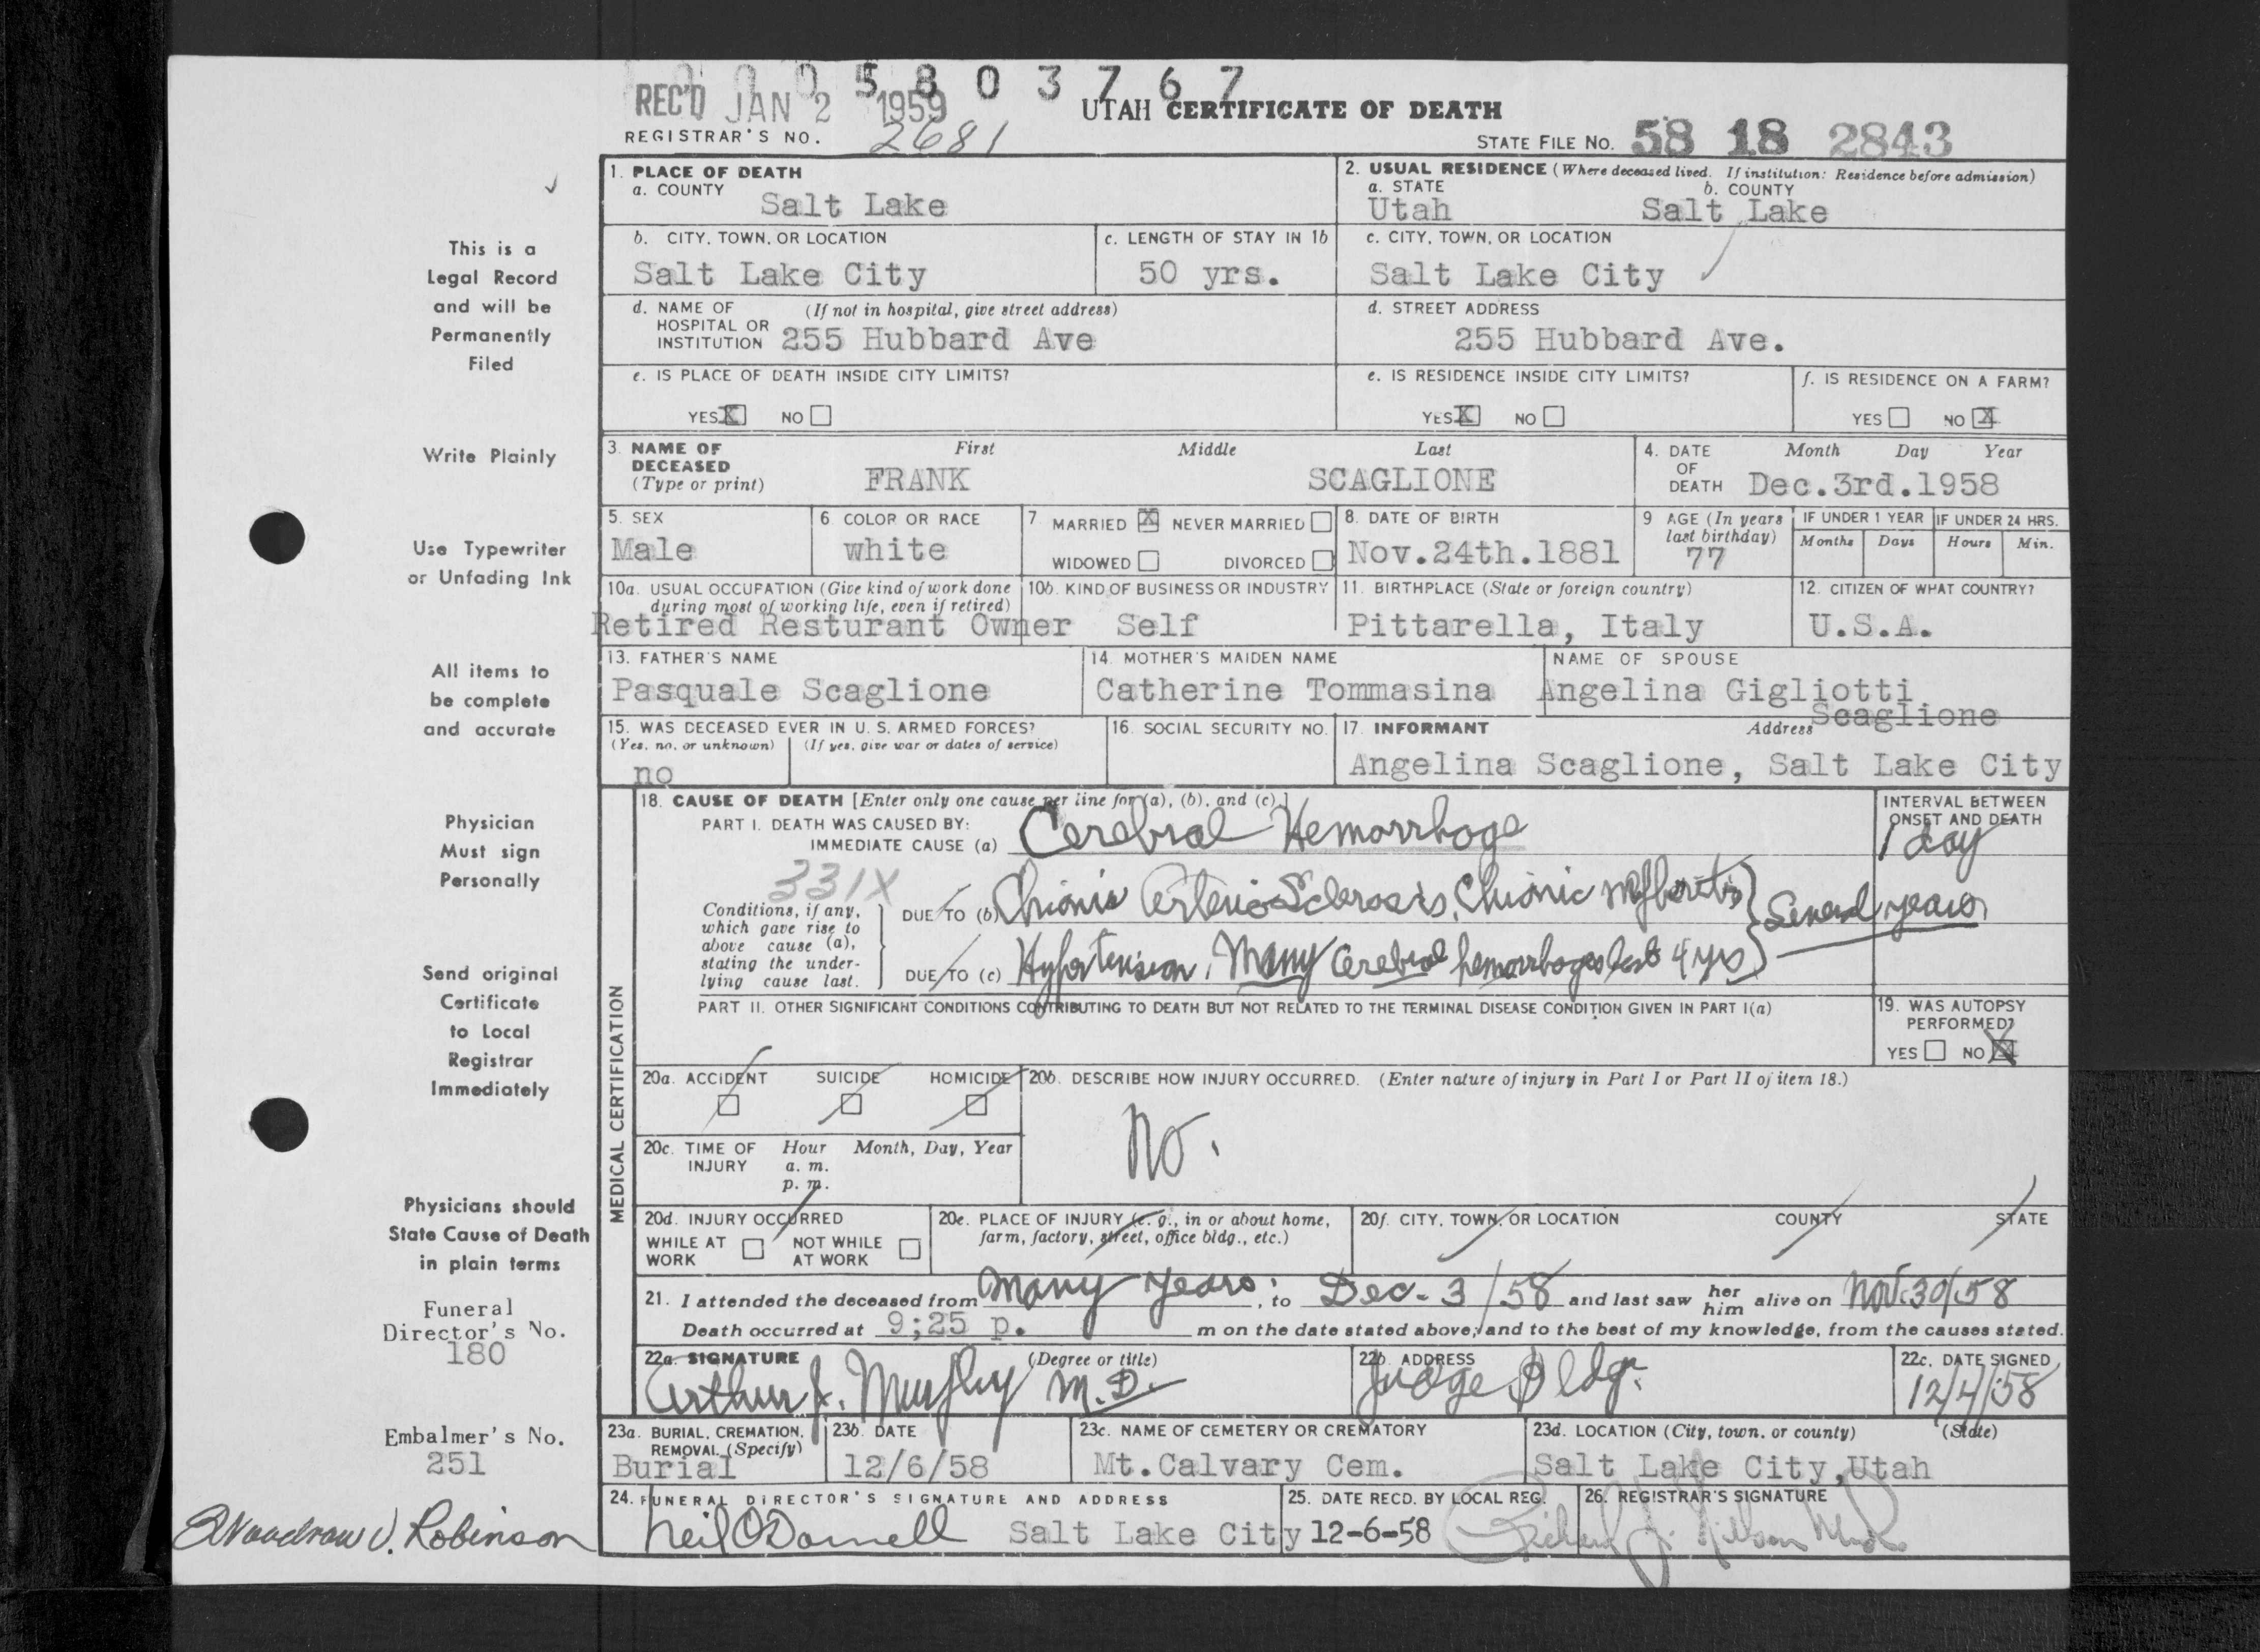 0005803767
REC'D JAN 2 1959
UTAH CERTIFICATE OF DEATH
REGISTRAR'S NO. 2681
STATE FILE NO. 58 18 2843
This is a
Legal Record
and will be
Permanently
Filed
Write Plainly
Use Typewriter
or Unfading Ink
All items to
be complete
and accurate
Physician
Must sign
Personally
Send original
Certificate
to Local
Registrar
Immediately
Physicians should
State Cause of Death
in plain terms
Funeral
Director's No.
180
Embalmer's No.
251
Woodrow V. Robinson
1. PLACE OF DEATH
a. COUNTY Salt Lake
2. USUAL RESIDENCE (Where deceased lived. If institution: Residence before admission)
a. STATE Utah b. COUNTY Salt Lake
b. CITY, TOWN, OR LOCATION Salt Lake City
c. LENGTH OF STAY IN 1b 50 yrs.
c. CITY, TOWN, OR LOCATION Salt Lake City
d. NAME OF HOSPITAL OR INSTITUTION (If not in hospital, give street address) 255 Hubbard Ave
d. STREET ADDRESS 255 Hubbard Ave.
e. IS PLACE OF DEATH INSIDE CITY LIMITS?
YES X NO
e. IS RESIDENCE INSIDE CITY LIMITS?
YES X NO
f. IS RESIDENCE ON A FARM?
YES NO X
3. NAME OF DECEASED (Type or print) First Middle Last
FRANK SCAGLIONE
4. DATE OF DEATH Month Day Year
Dec.3rd.1958
5. SEX Male
6 COLOR OR RACE white
7. MARRIED X NEVER MARRIED
WIDOWED DIVORCED
8. DATE OF BIRTH Nov.24th.1881
9 AGE (In years last birthday) 77
IF UNDER 1 YEAR Months Days
IF UNDER 24 HRS. Hours Min.
10a. USUAL OCCUPATION (Give kind of work done during most of working life, even if retired)
Retired Resturant Owner
10b. KIND OF BUSINESS OR INDUSTRY Self
11. BIRTHPLACE (State or foreign country) Pittarella, Italy
12. CITIZEN OF WHAT COUNTRY? U.S.A.
13. FATHER'S NAME Pasquale Scaglione
14. MOTHER'S MAIDEN NAME Catherine Tommasina
NAME OF SPOUSE Angelina Gigliotti Scaglione
15. WAS DECEASED EVER IN U. S. ARMED FORCES?
(Yes, no, or unknown) (If yes, give war or dates of service)
no
16. SOCIAL SECURITY NO.
17. INFORMANT Address
Angelina Scaglione, Salt Lake City
MEDICAL CERTIFICATION
18. CAUSE OF DEATH [Enter only one cause per line for (a), (b), and (c).]
PART I. DEATH WAS CAUSED BY:
IMMEDIATE CAUSE (a) Cerebral Hemorrhage
INTERVAL BETWEEN ONSET AND DEATH
1 day
331X
Conditions, if any, which gave rise to above cause (a), stating the underlying cause last.
DUE TO (b) Chronic Arterio Sclerosis, Chronic Nephritis
Several years
DUE TO (c) Hypertension, Many Cerebral hemorrhages last 4 yrs
PART II. OTHER SIGNIFICANT CONDITIONS CONTRIBUTING TO DEATH BUT NOT RELATED TO THE TERMINAL DISEASE CONDITION GIVEN IN PART I(a)
19. WAS AUTOPSY PERFORMED?
YES NO X
20a. ACCIDENT SUICIDE HOMICIDE
20b. DESCRIBE HOW INJURY OCCURRED. (Enter nature of injury in Part I or Part II of item 18.)
No.
20c. TIME OF INJURY Hour Month, Day, Year
a. m.
p. m.
20d. INJURY OCCURRED
WHILE AT WORK NOT WHILE AT WORK
20e. PLACE OF INJURY (e. g., in or about home, farm, factory, street, office bldg., etc.)
20f. CITY, TOWN, OR LOCATION COUNTY STATE
21. I attended the deceased from Many years, to Dec. 3/58 and last saw her him alive on Nov. 30/58
Death occurred at 9;25 p. m on the date stated above; and to the best of my knowledge, from the causes stated.
22a. SIGNATURE (Degree or title)
Arthur J. Murphy M.D.
22b. ADDRESS Judge Bldg.
22c. DATE SIGNED 12/4/58
23a. BURIAL, CREMATION, REMOVAL (Specify) Burial
23b. DATE 12/6/58
23c. NAME OF CEMETERY OR CREMATORY Mt.Calvary Cem.
23d. LOCATION (City, town, or county) (State)
Salt Lake City,Utah
24. FUNERAL DIRECTOR'S SIGNATURE AND ADDRESS
Neil O'Donnell Salt Lake City
25. DATE RECD. BY LOCAL REG. 12-6-58
26. REGISTRAR'S SIGNATURE